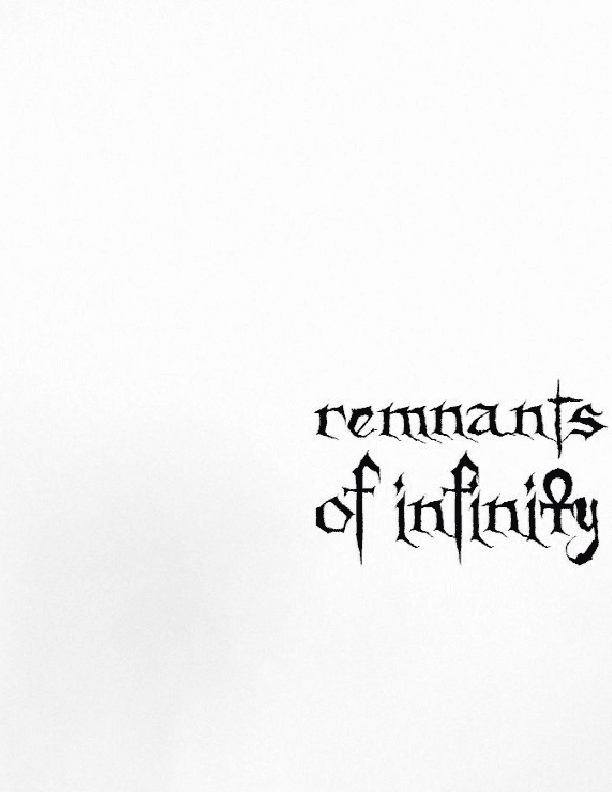 remnants
of infinity